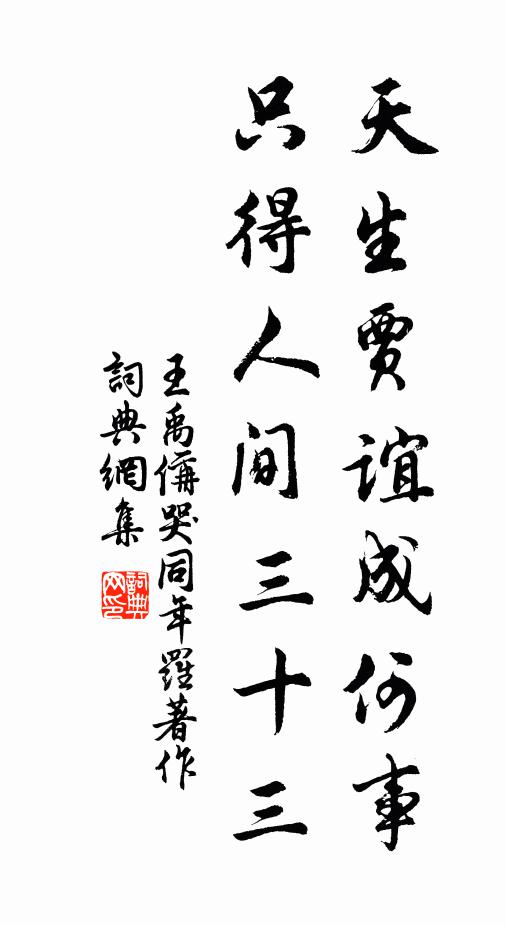 天生賈誼成何事
只得人間三十三
王禹偁哭同年羅著作
詞典網集
詞典網印